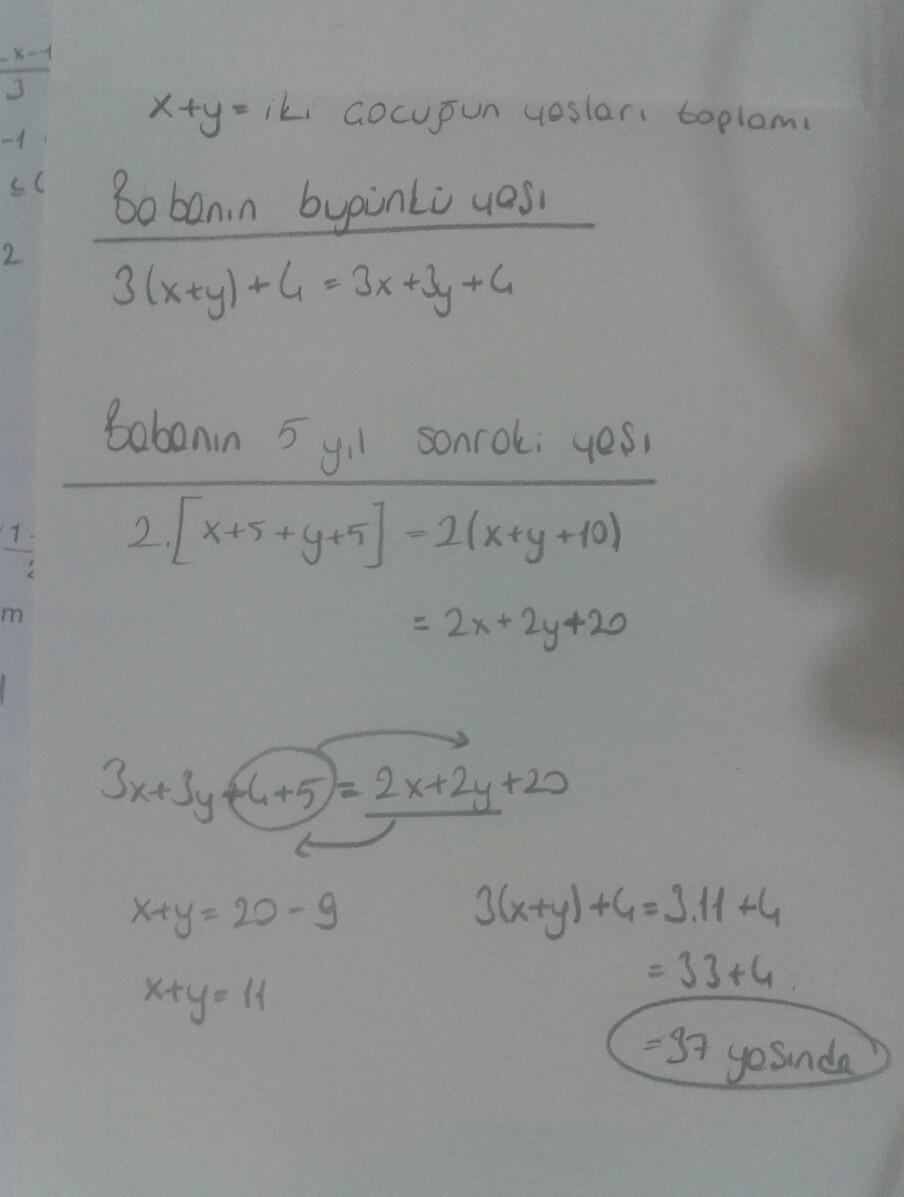 -x-1
3
-1
≤ (
2
x+y= iki çocuğun yaşları toplamı
Babanın bugünkü yaşı
3(x+y)+4 = 3x+3y+4
Babanın 5 yıl sonraki yaşı
2.[x+5+y+5] = 2(x+y+10)
= 2x+2y+20
1
2
m
3x+3y+4+5 = 2x+2y+20
x+y= 20-9
x+y= 11
3(x+y)+4=3.11+4
= 33+4
=37 yaşında